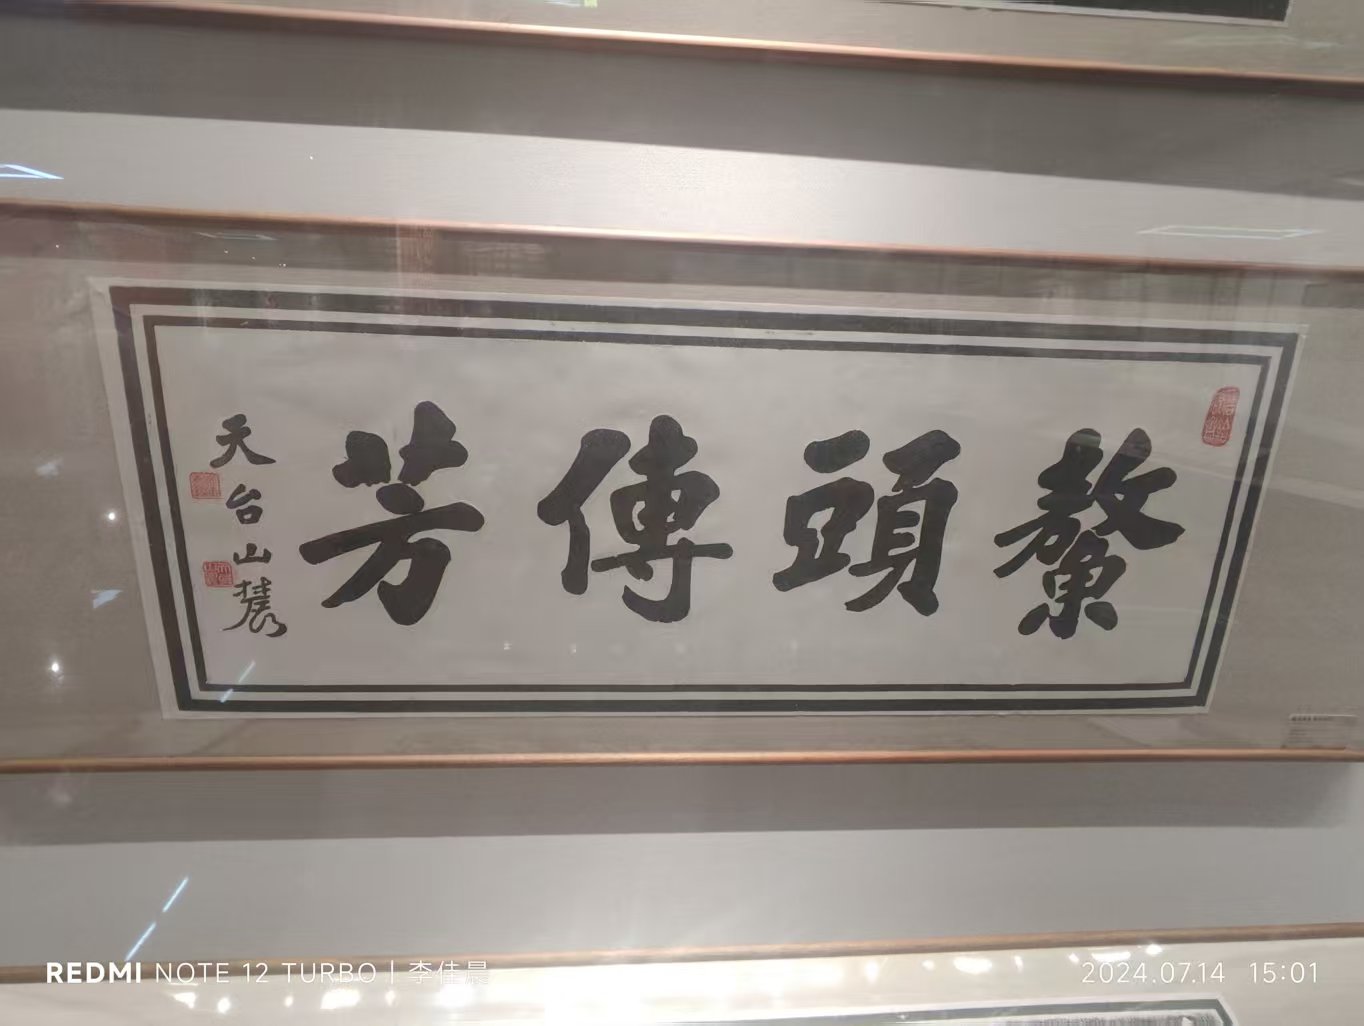 鰲頭傳芳
天台山農
REDMI NOTE 12 TURBO | 李佳晨
2024.07.14 15:01